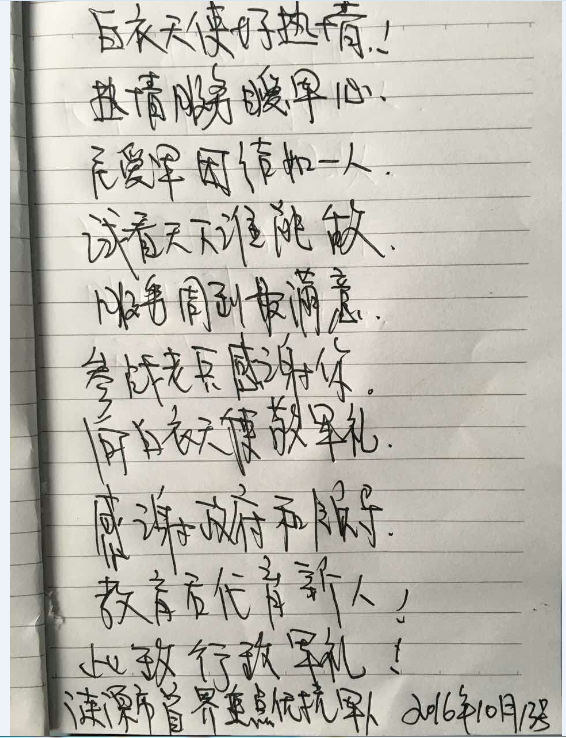 白衣天使好热情.!
热情服务暖军心.
尼爱军因情如一人.
试看天下谁能敌.
服务周到最满意.
参战老兵感谢你.
向白衣天使敬军礼.
感谢政府和领导.
教育后代育新人!
此致行政军礼!
涟源市首界重点优抗军人 2016年10月13号